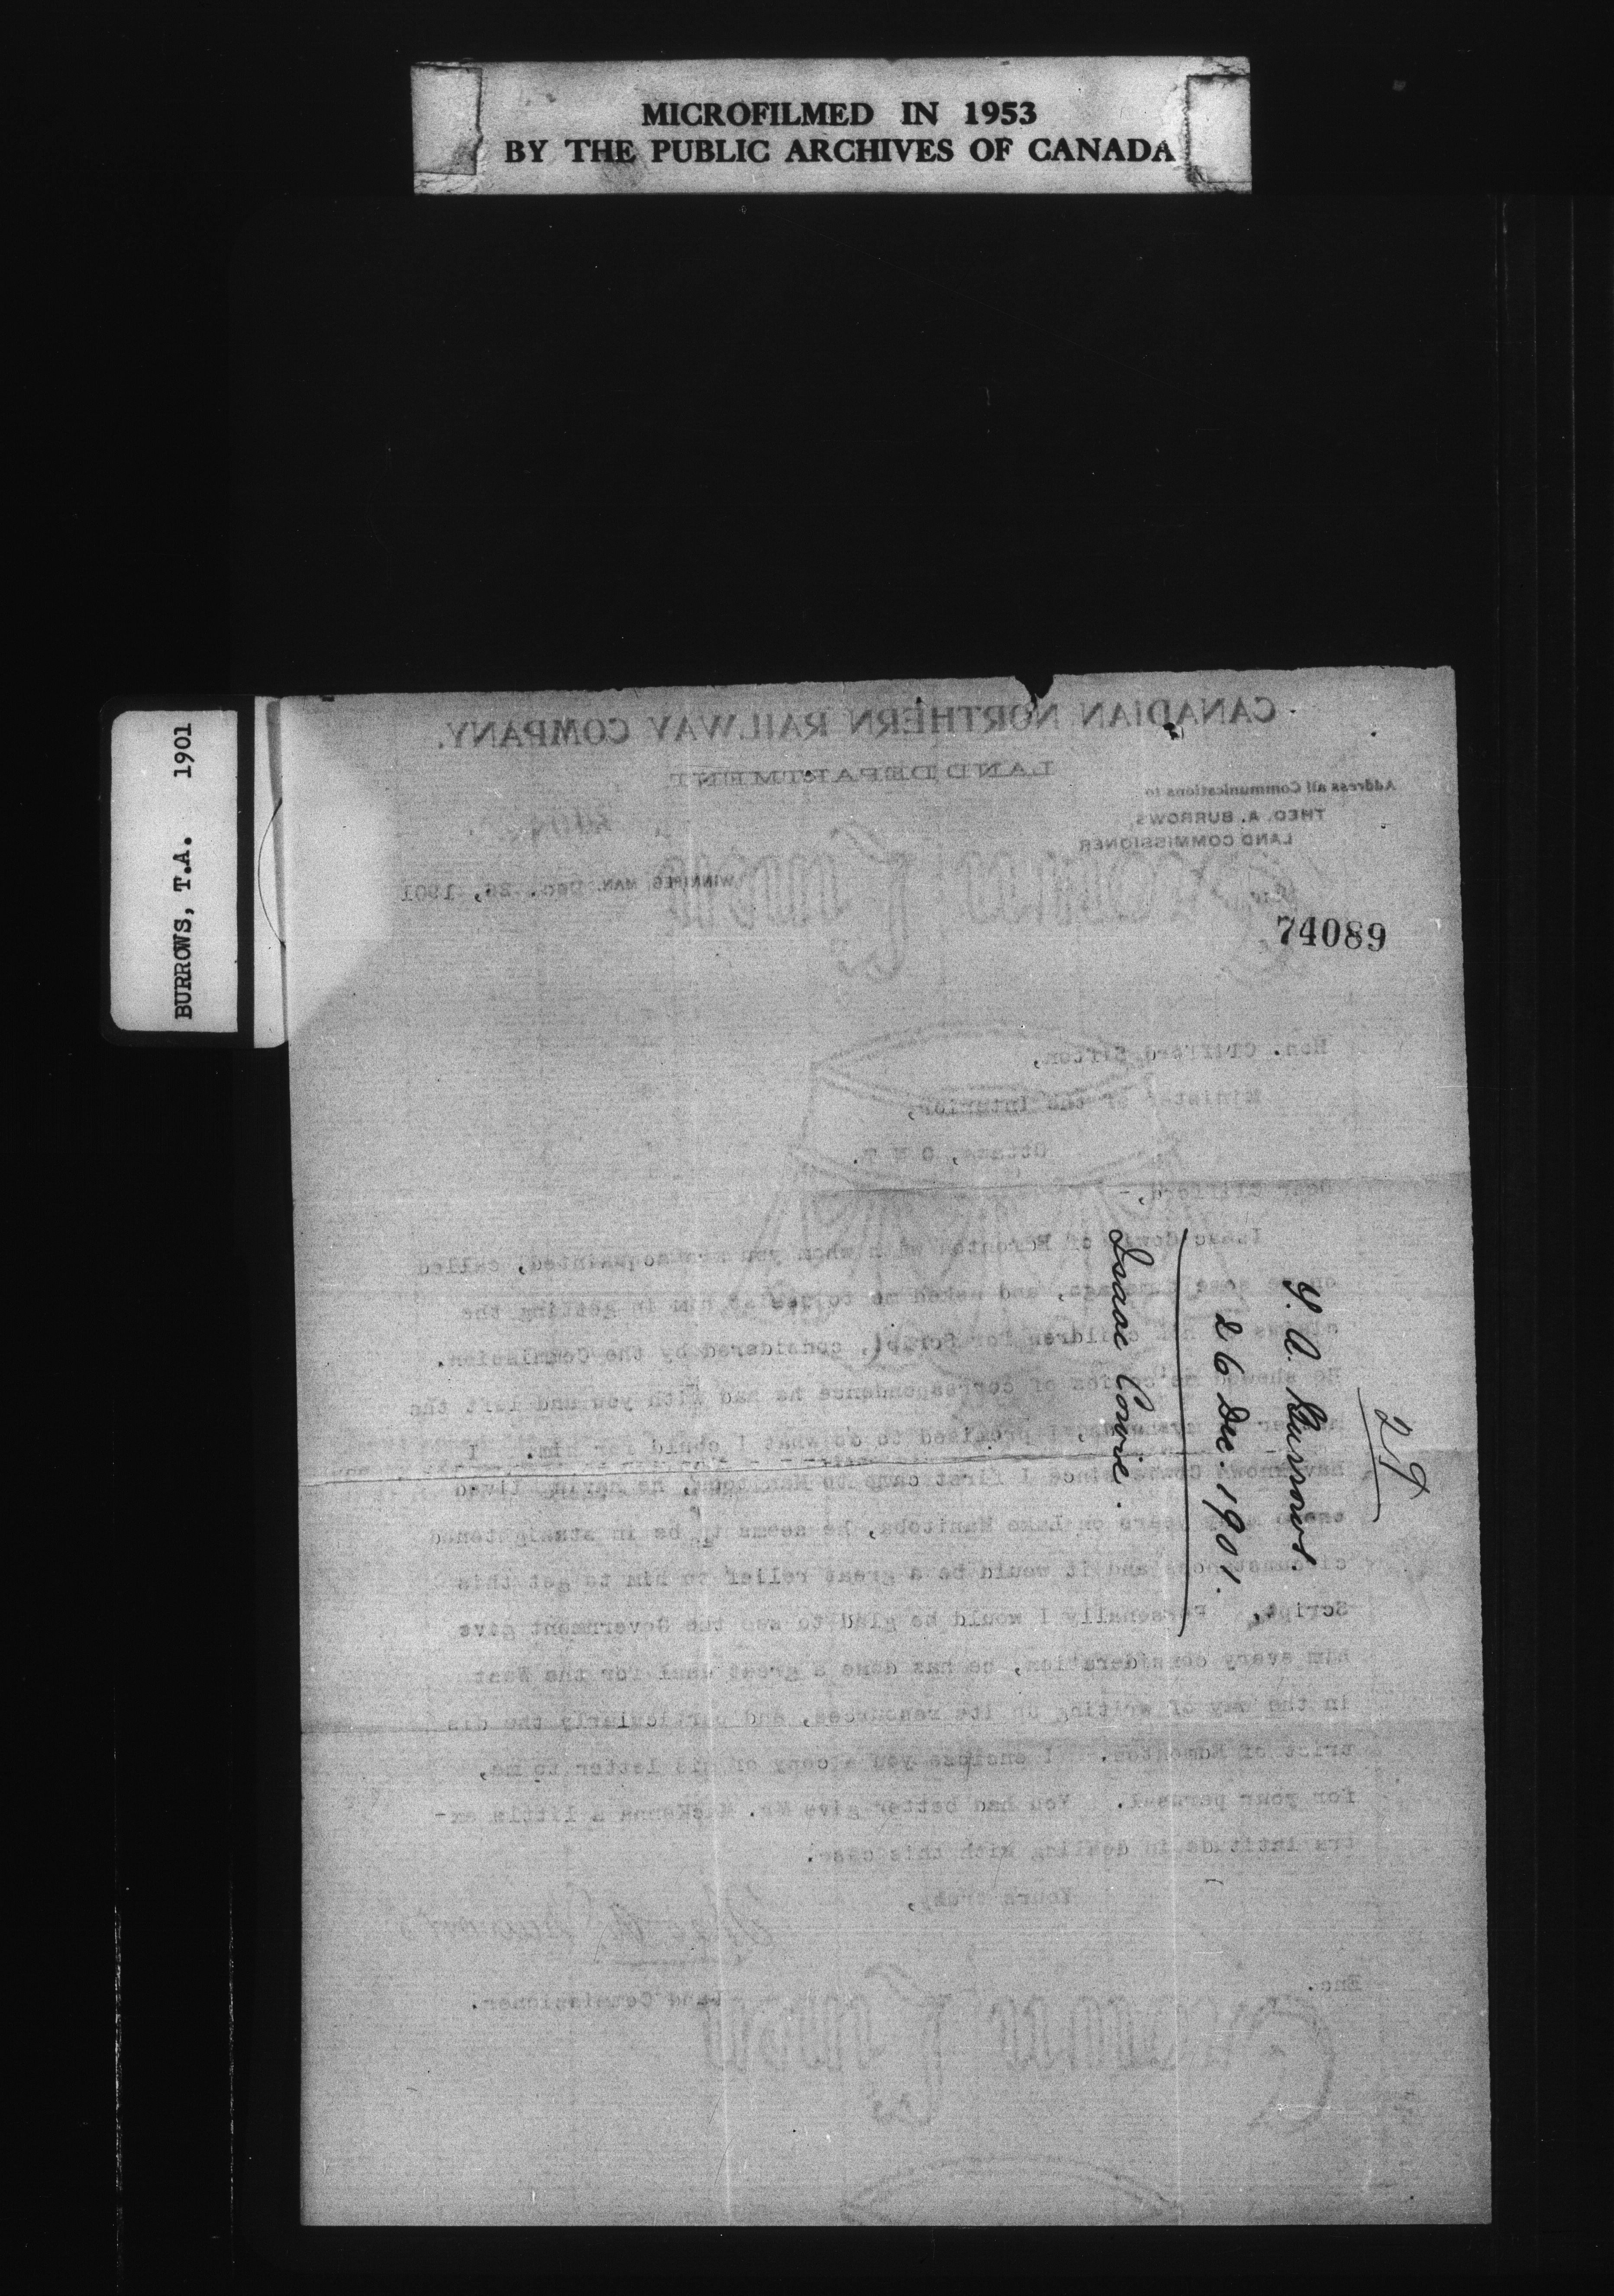 MICROFILMED IN 1953
BY THE PUBLIC ARCHIVES OF CANADA
BURROWS, T.A. 1901
CANADIAN NORTHERN RAILWAY COMPANY.
LAND DEPARTMENT
Address all Communications to
THEO. A. BURROWS,
LAND COMMISSIONER
WINNIPEG, MAN. Dec. 26, 1901
74089
Hon. Clifford Sifton,
Minister of the Interior,
Ottawa, O N T.
Dear Clifford,-
Isaac Cowie of Edmonton with whom you are acquainted, called
on me some time ago, and asked me to assist him in getting the
claims of his children for Script, considered by the Commission.
He showed me copies of correspondence he had with you and left the
I promised to do what I could for him. I
have known Cowie since I first came to Manitoba, he having lived
many years on Lake Manitoba, he seems to be in straightened
circumstances and it would be a great relief to him to get this
Script. Personally I would be glad to see the Government give
him every consideration, he has done a great deal for the West
in the way of writing up its resources, and particularly the dis
trict of Edmonton. I enclose you a copy of his letter to me,
for your perusal. You had better give Mr. McKenna a little ex-
tra latitude in dealing with this case.
Yours truly,
Theo A. Burrows
Land Commissioner.
Enc.
29
T. A. Burrows.
26 Dec. 1901.
Isaac Cowie.